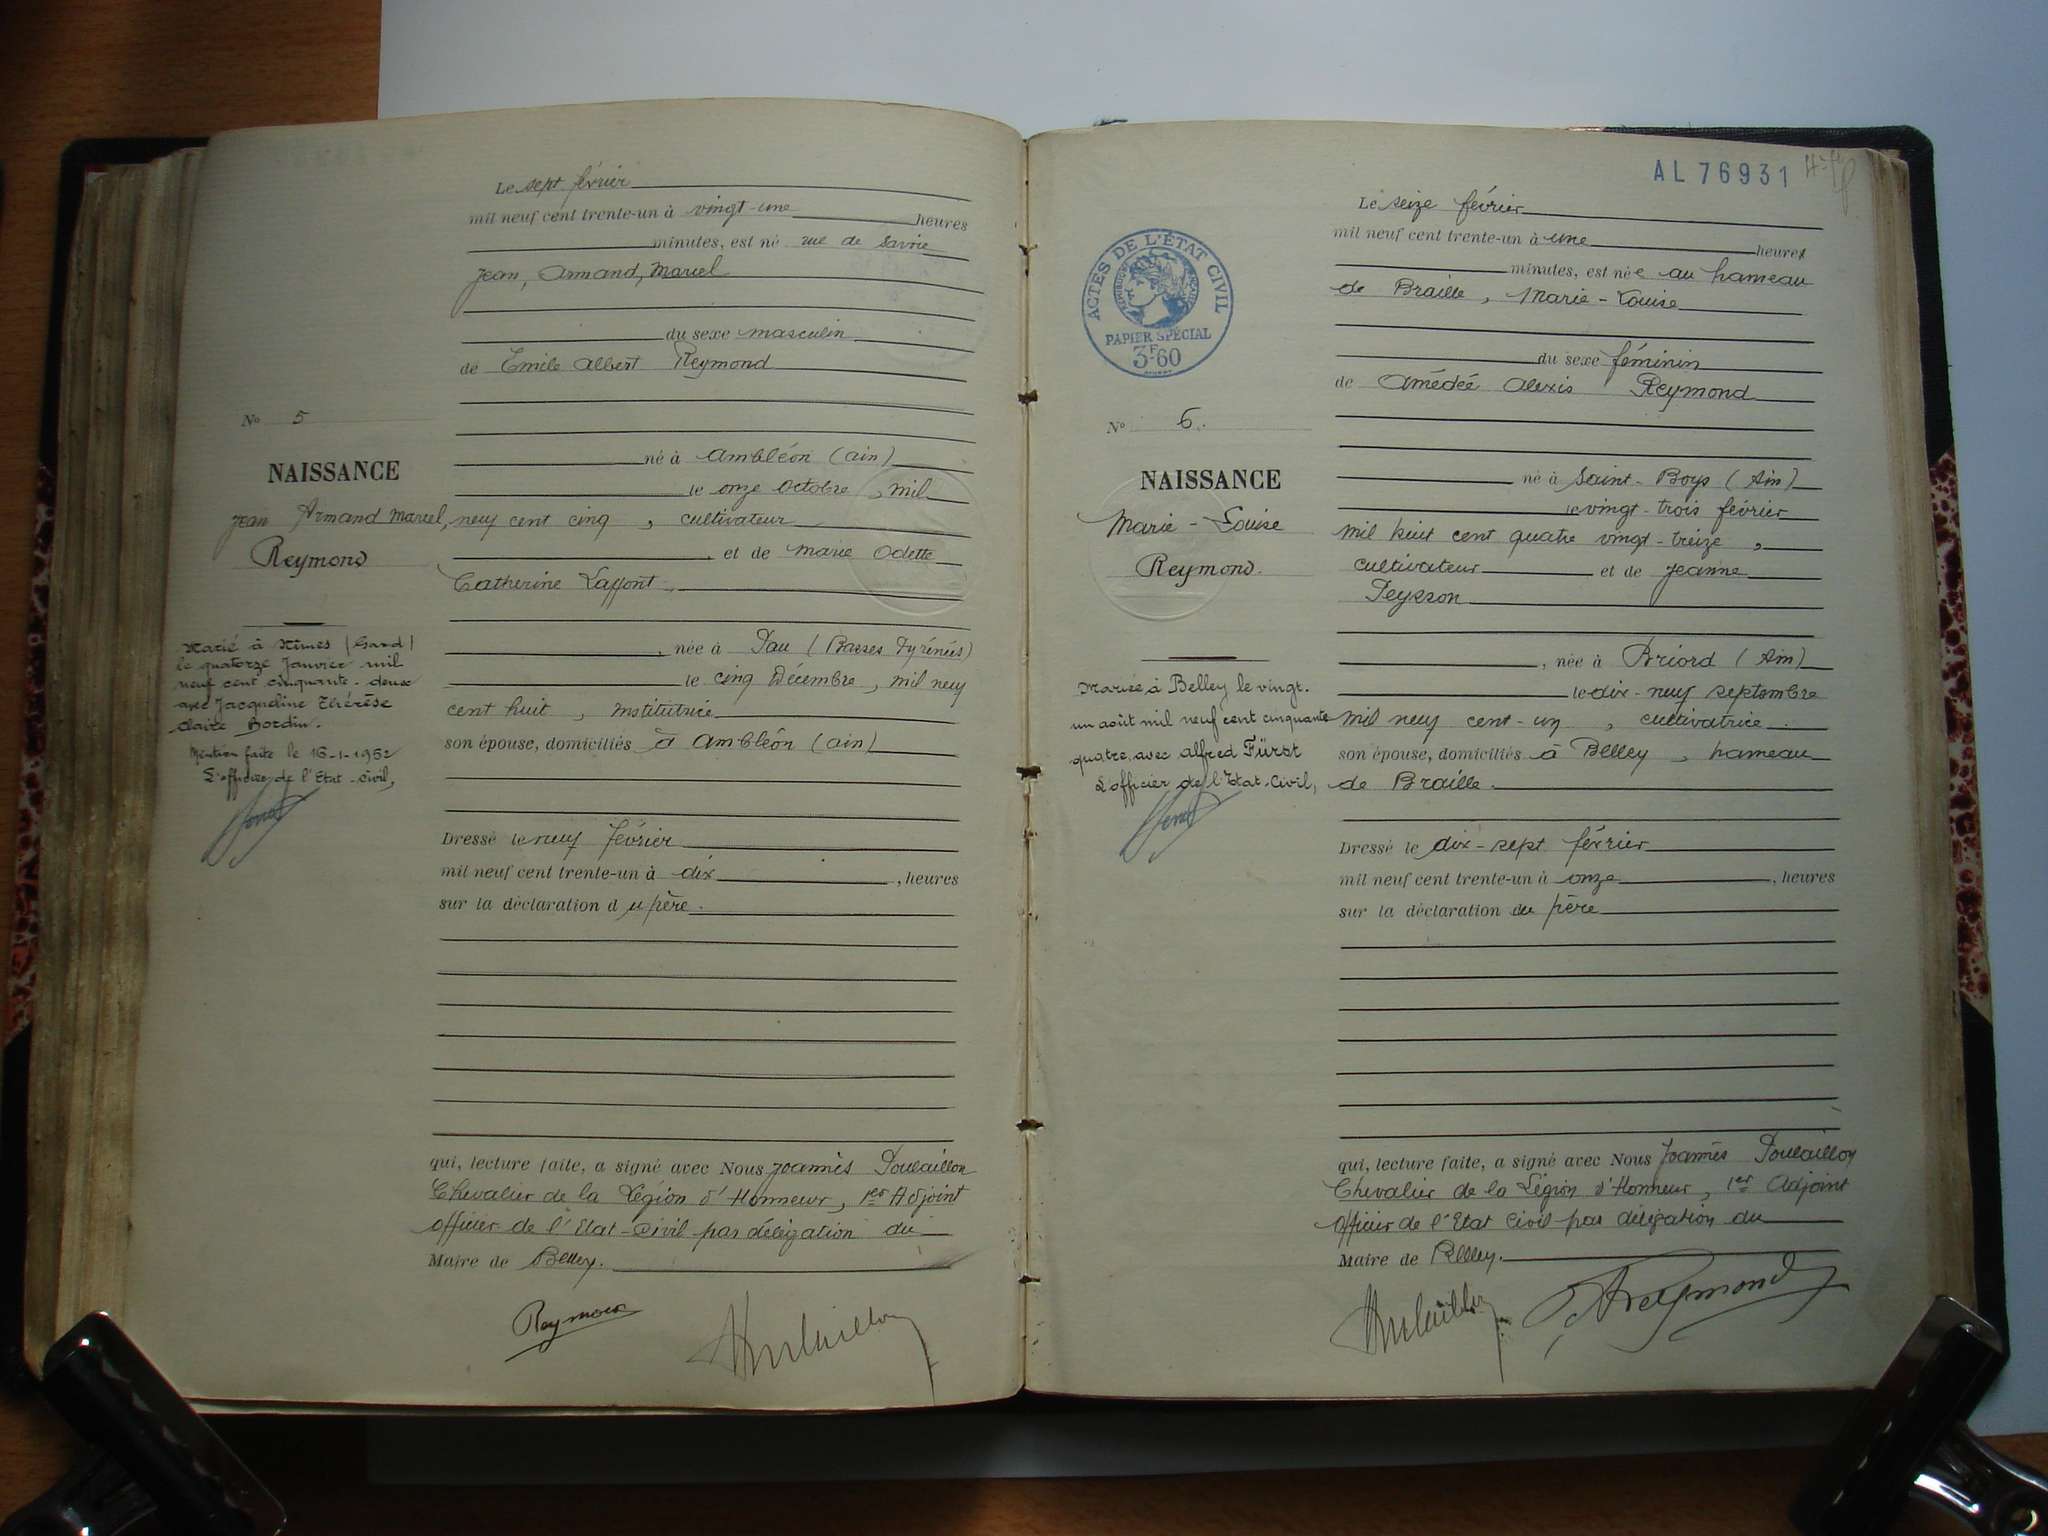 Le sept février
mil neuf cent trente-un à vingt-une heures
minutes, est né rue de Savoie
Jean, Armand, Marcel
du sexe masculin
de Emile Albert Reymond
né à Ambléon (Ain)
le onze Octobre, mil
neuf cent cinq, cultivateur
et de Marie Odette
Catherine Laffont,
, née à Pau (Basses Pyrénées)
le cinq Décembre, mil neuf
cent huit, institutrice
son épouse, domiciliés à Ambléon (ain)
Dressé le neuf février
mil neuf cent trente-un à dix, heures
sur la déclaration du père.
qui, lecture faite, a signé avec Nous Joannès Poulaillon
Chevalier de la Légion d'Honneur, 1er Adjoint
officier de l'Etat-Civil par délégation du
Maire de Belley.
Reymond
Poulaillon
No 5
NAISSANCE
Jean Armand Marcel,
Reymond
Marié à Nîmes (Gard)
le quatorze Janvier mil
neuf cent cinquante-deux
avec Jacqueline Thérèse
Claire Bordin.
Mention faite le 16-1-1952
L'officier de l'Etat-civil,
AL 76931
ACTES DE L'ÉTAT CIVIL
RÉPUBLIQUE FRANÇAISE
PAPIER SPÉCIAL
3F60
Le seize février
mil neuf cent trente-un à une heure
minutes, est née au hameau
de Braille, Marie-Louise
du sexe féminin
de Amédée Alexis Reymond
né à Saint-Boys (Ain)
le vingt-trois février
mil huit cent quatre vingt-treize,
cultivateur et de Jeanne
Peysson
, née à Briord (Ain)
le dix-neuf septembre
mil neuf cent-un, cultivatrice
son épouse, domiciliés à Belley, hameau
de Braille.
Dressé le dix-sept février
mil neuf cent trente-un à onze, heures
sur la déclaration du père
qui, lecture faite, a signé avec Nous Joannès Poulaillon
Chevalier de la Légion d'Honneur, 1er Adjoint
officier de l'Etat Civil par délégation du
Maire de Belley.
Poulaillon
Reymond
No 6.
NAISSANCE
Marie-Louise
Reymond.
Mariée à Belley le vingt.
un août mil neuf cent cinquante
quatre avec Alfred Fürst
L'officier de l'Etat-Civil,